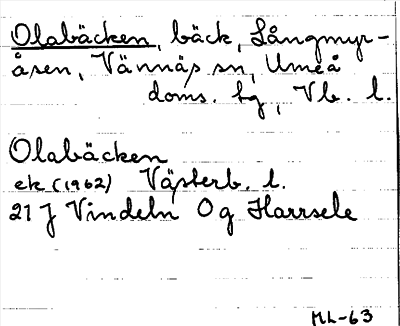 Olabäcken, bäck, Långmyr-
åsen, Vännäs sn, Umeå
doms. fg, Vb. l.
Olabäcken
ek (1962) Västerb. l.
21 J Vindeln O g Harrsele
ML-63